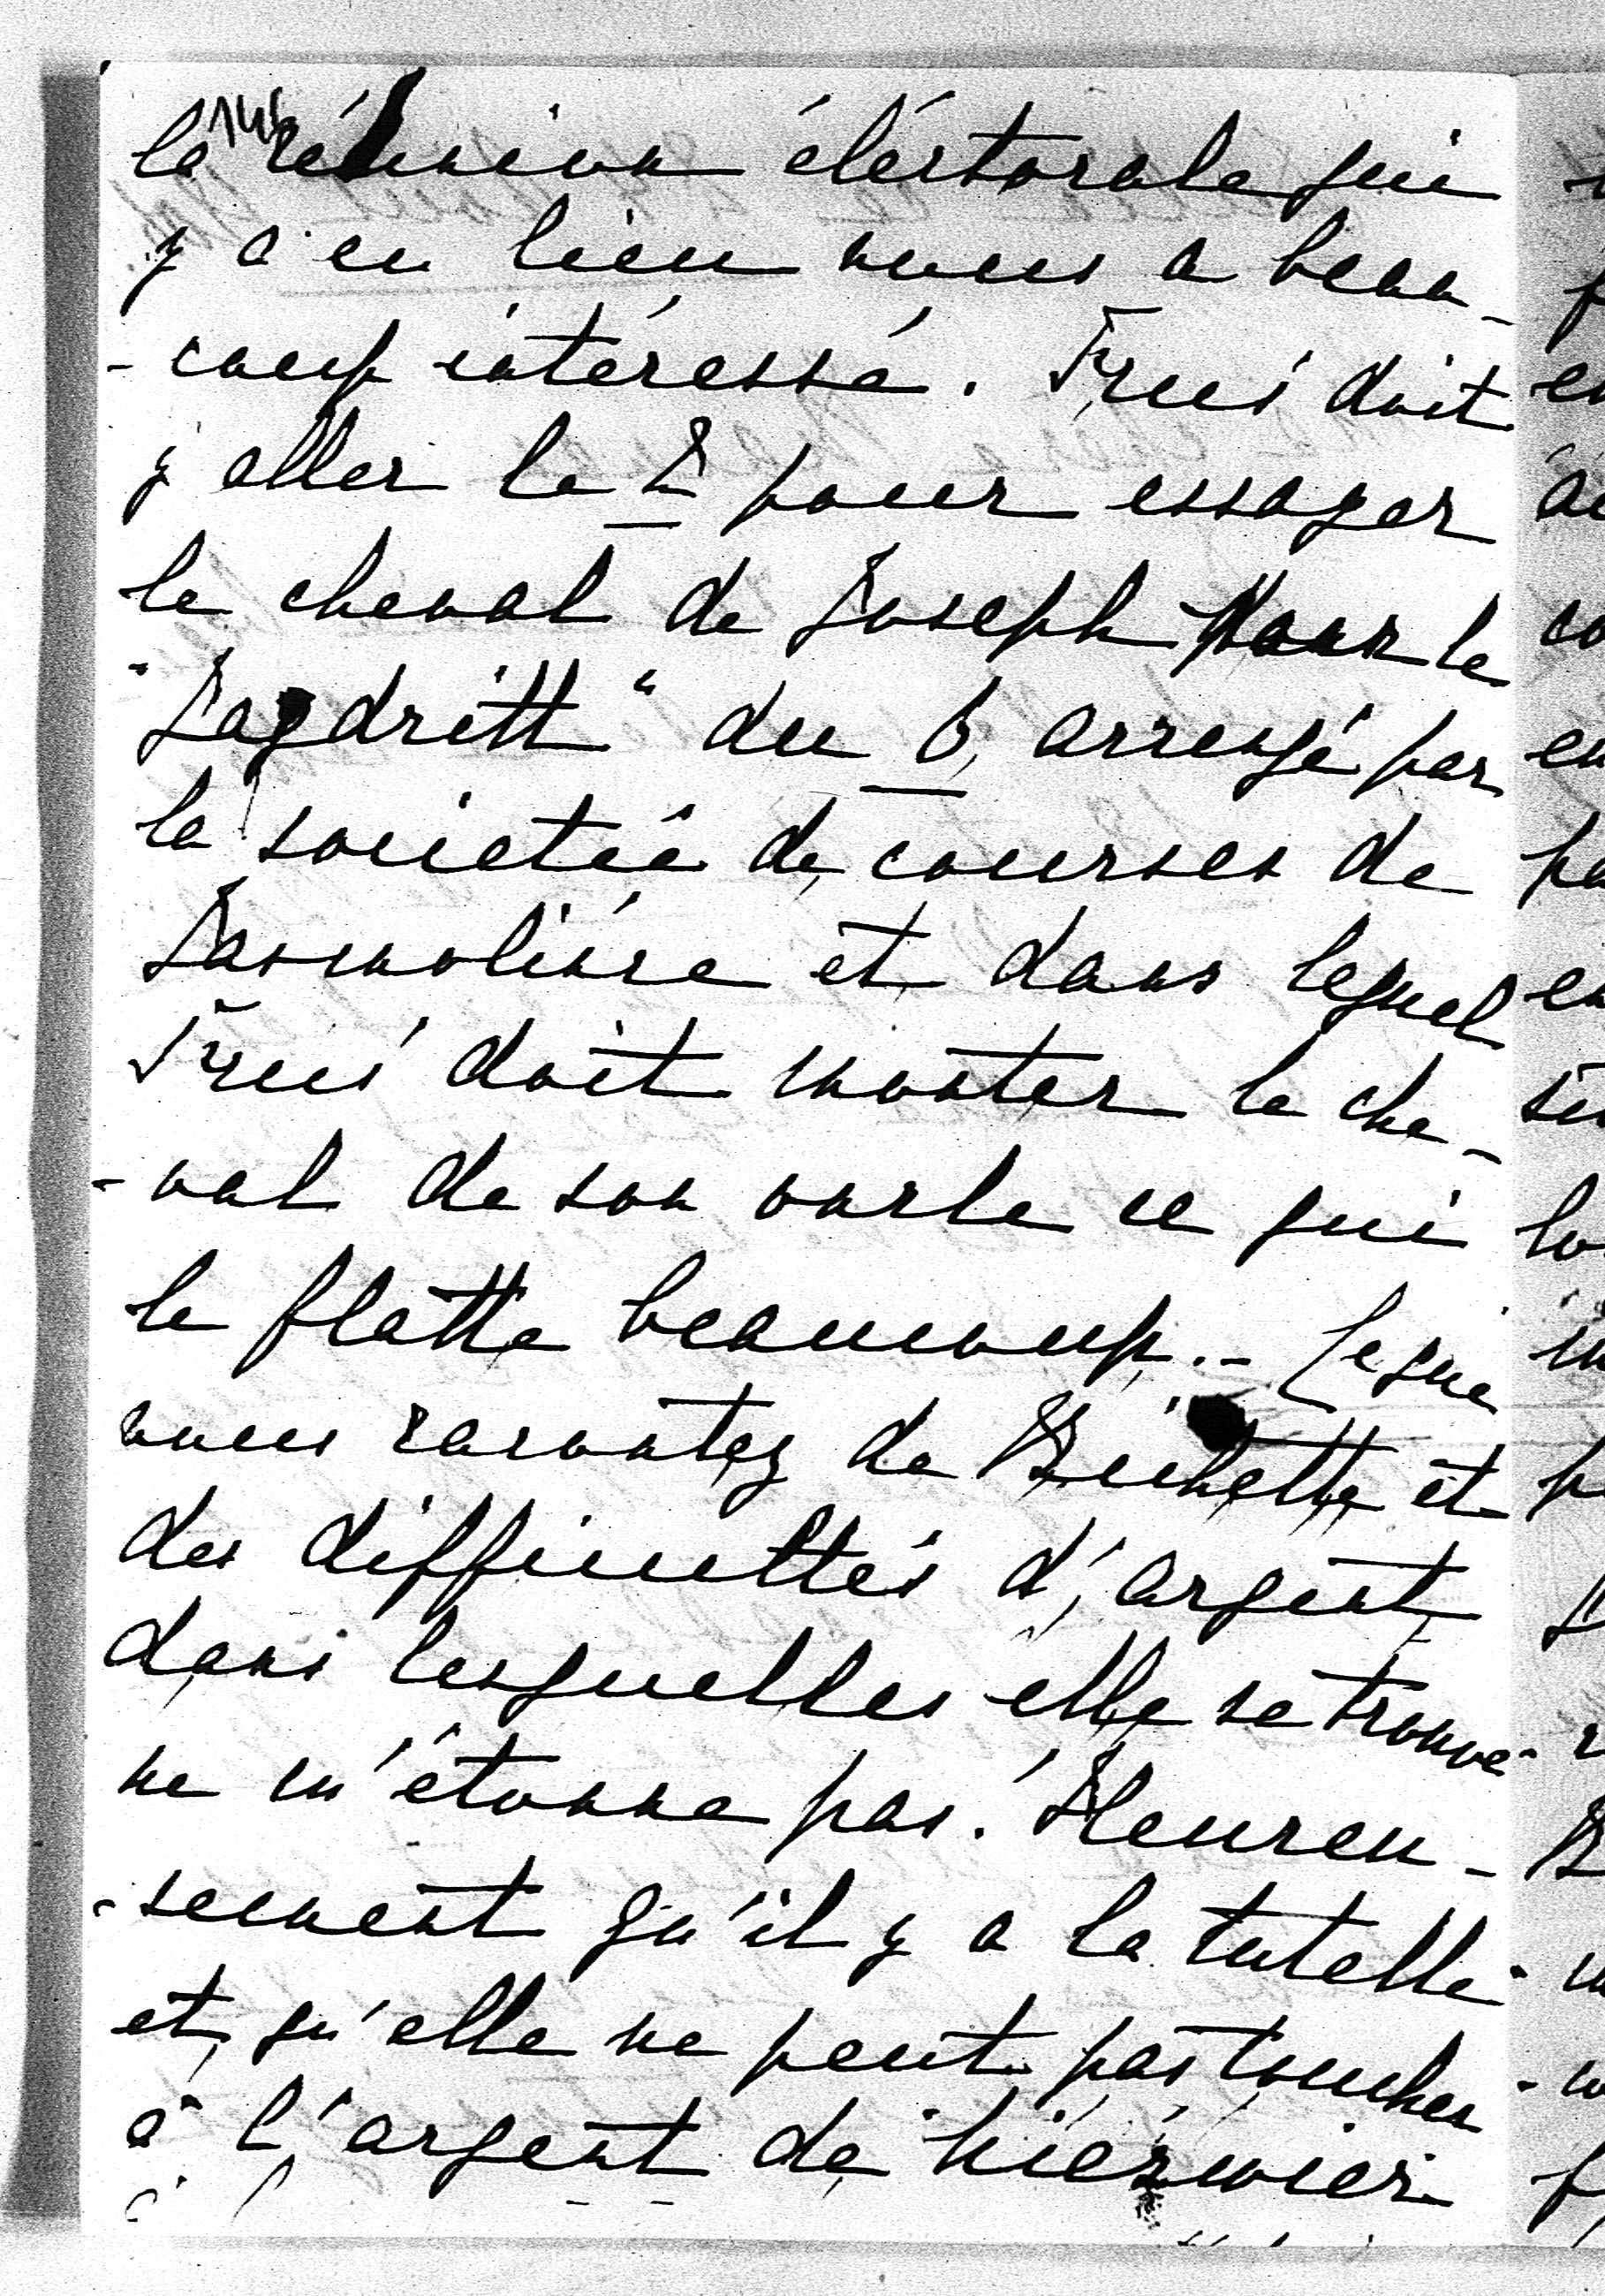 146
la réunion électorale qui
y a eu lieu nous a beau-
-coup intéressé. Truś doit
y aller le 2 pour essayer
le cheval de Joseph pour le
"Jagdritt" du 6, arrangé par
la societée de courses de
et dans lequel
Truś doit monter le che-
-val de son oncle ce qui
le flatte beaucoup. - Ce que
vous racontez de Bichette et
des difficultés d'argent
dans lesquelles elle se trouve
ne m'étonne pas. Heureu-
-sement qu'il y a la tutelle
et qu'elle ne peut pas toucher
à l'argent de